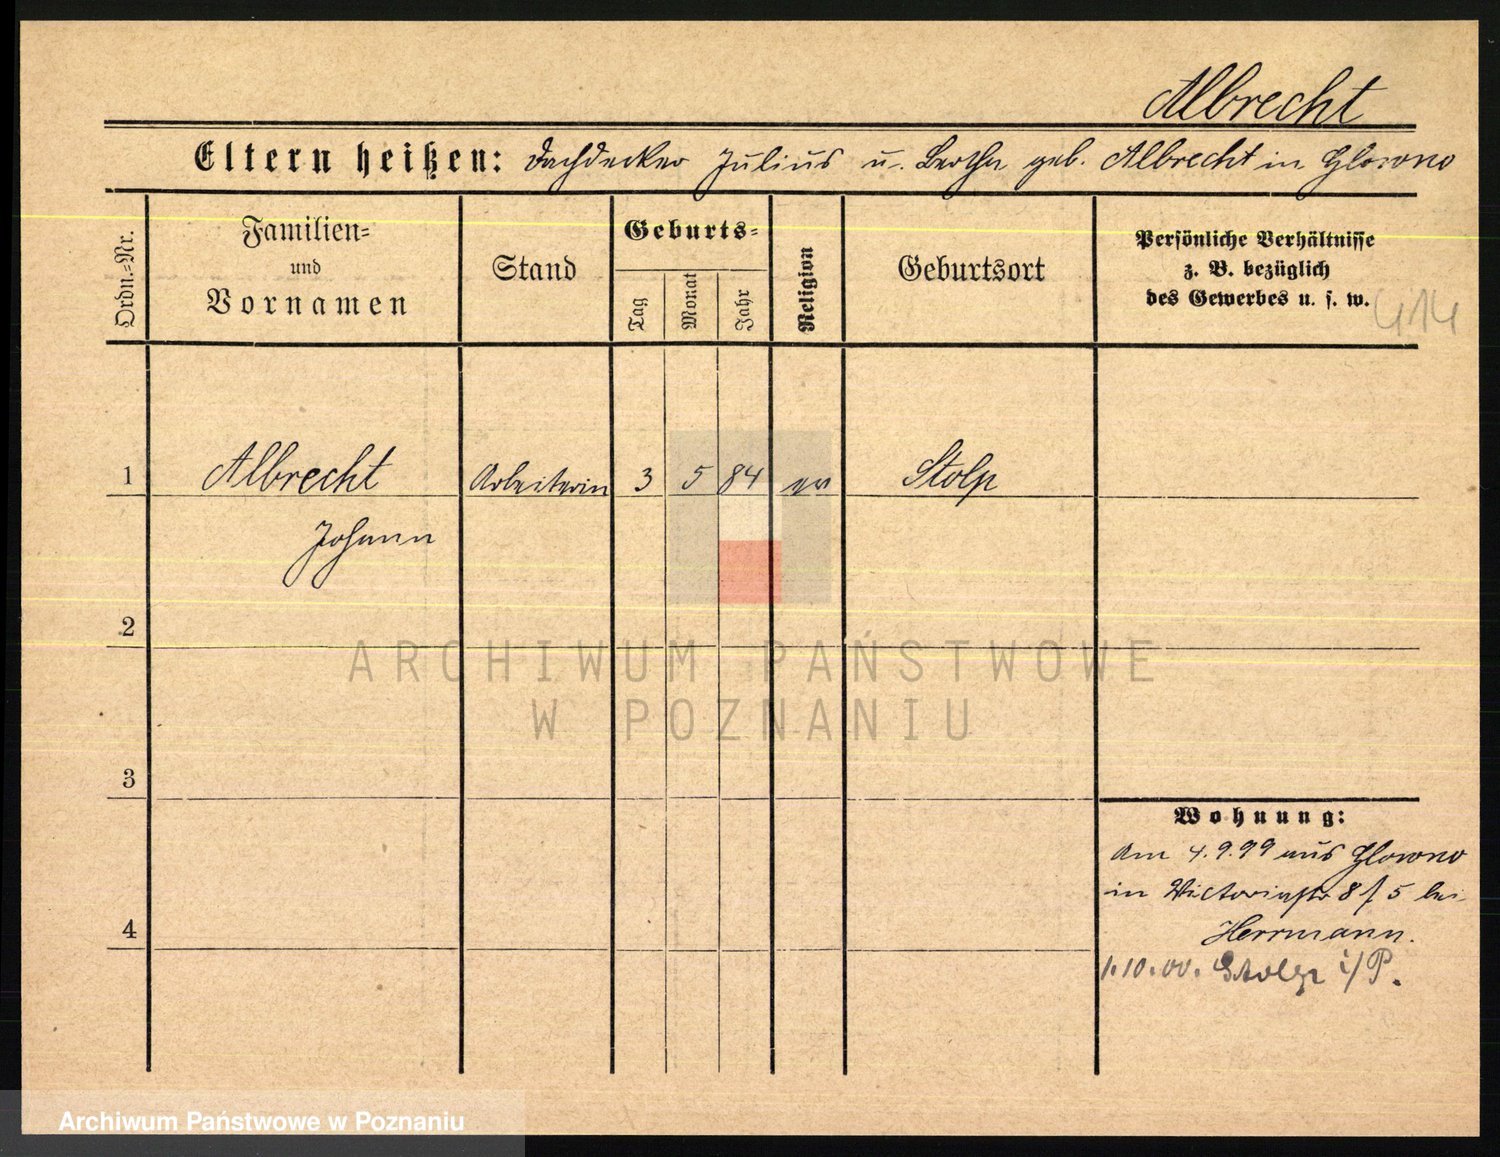 Albrecht
Eltern heißen: Dachdecker Julius u. Bertha geb. Albrecht in Glowno
Ordn.=Nr.
Familien=
und
Vornamen
Stand
Geburts=
Tag
Monat
Jahr
Religion
Geburtsort
Persönliche Verhältnisse
z. B. bezüglich
des Gewerbes u. s. w.
414
1 Albrecht Arbeiterin 3 5 84 ev Stolp
Johann
2
ARCHIWUM PAŃSTWOWE
W POZNANIU
3
Wohnung:
Am 4.9.99 aus Glowno
in Victoriastr 8 f 5 bei
Herrmann.
4
1.10.00. Stolp i/P.
Archiwum Państwowe w Poznaniu